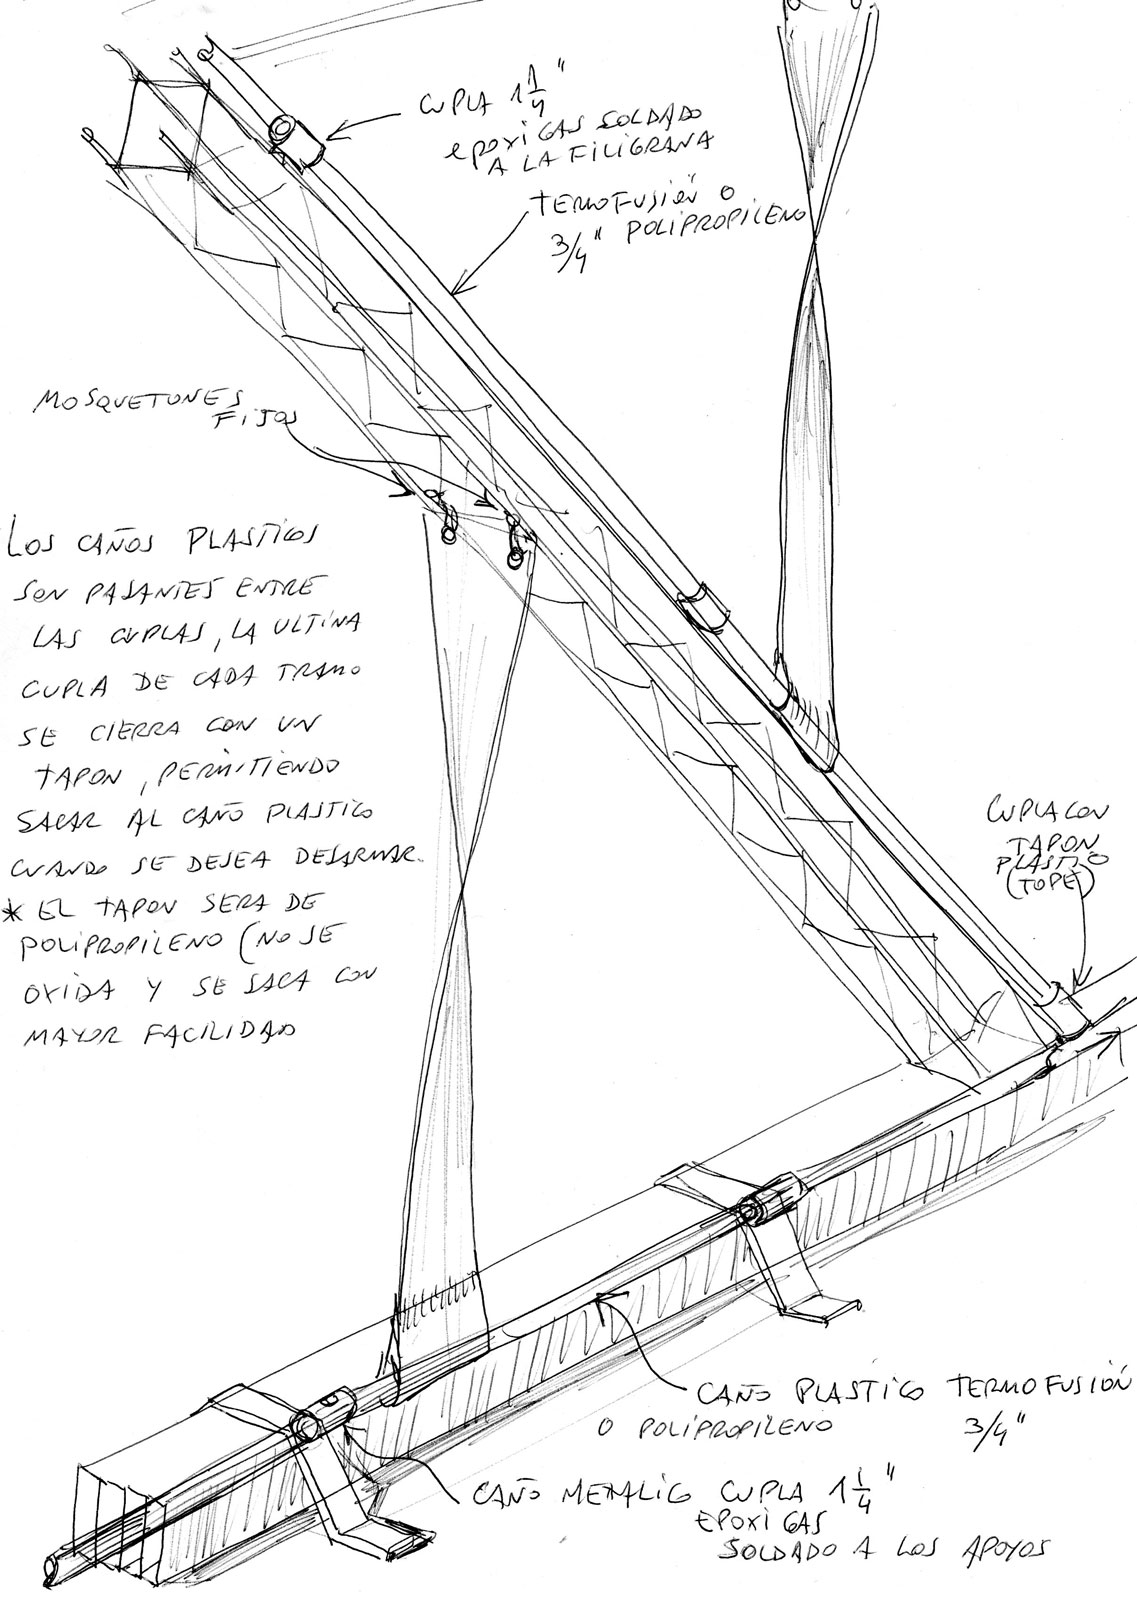 CUPLA 1 1/4"
EPOXI GAS SOLDADO
A LA FILIGRANA
TERMOFUSIÓN O
3/4" POLIPROPILENO
MOSQUETONES
FIJOS
LOS CAÑOS PLASTICOS
SON PASANTES ENTRE
LAS CUPLAS, LA ULTIMA
CUPLA DE CADA TRAMO
SE CIERRA CON UN
TAPON, PERMITIENDO
SACAR AL CAÑO PLASTICO
CUANDO SE DESEA DESARMAR.
* EL TAPON SERA DE
POLIPROPILENO (NO SE
OXIDA Y SE SACA CON
MAYOR FACILIDAD
CUPLA CON
TAPON
PLASTICO
(TOPE)
CAÑO PLASTICO TERMOFUSIÓN
O POLIPROPILENO 3/4"
CAÑO METALICO CUPLA 1 1/4"
EPOXI GAS
SOLDADO A LOS APOYOS